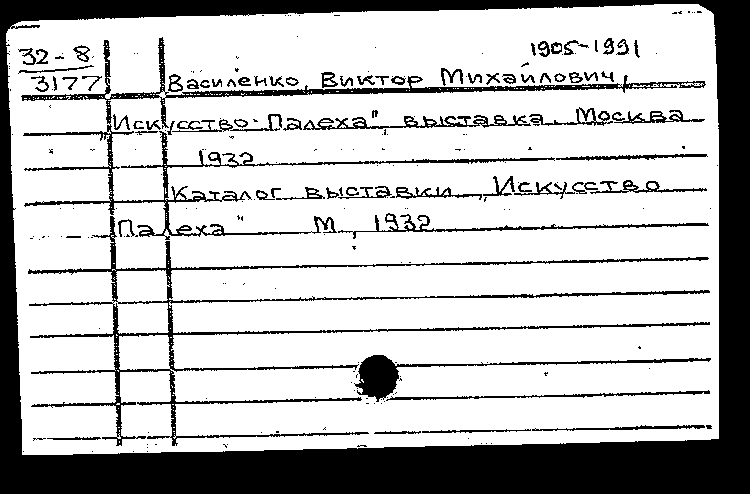 32-8 1905-1991
3177 Василенко, Виктор Михайлович,
„Искусство Палеха", выставка. Москва
1932
Каталог выставки „Искусство
Палеха" М, 1932